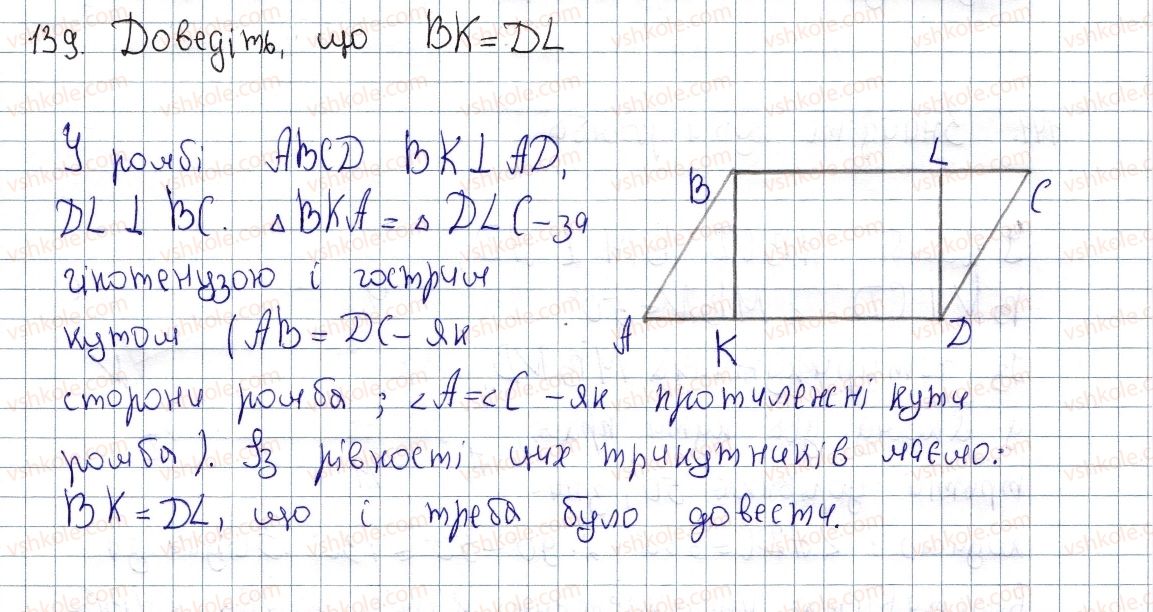 139. Доведіть, що BK = DL
У ромбі ABCD BK ⊥ AD,
DL ⊥ BC. △ BKA = △ DLC – за
гіпотенузою і гострим
кутом (AB = DC – як
сторони ромба; <A = <C – як протилежні кути
ромба). Із рівності цих трикутників маємо:
BK = DL, що і треба було довести.
B
L
C
A
K
D
vshkole.com